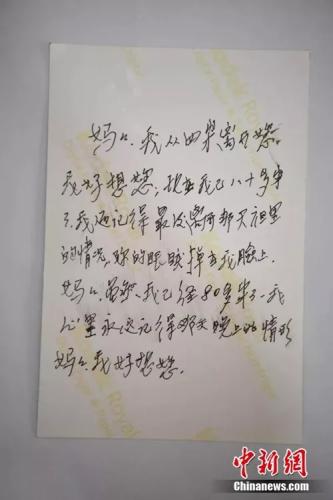 妈妈.我从四岁离开您。
我好想您,现在我已八十多岁
了.我还记得最后离开那天夜里
的情况,您的眼泪掉在我脸上.
妈妈.虽然我已经80多岁了.我
心里永远记得那天晚上的情形
妈妈.我好想您.
中新网
Chinanews.com